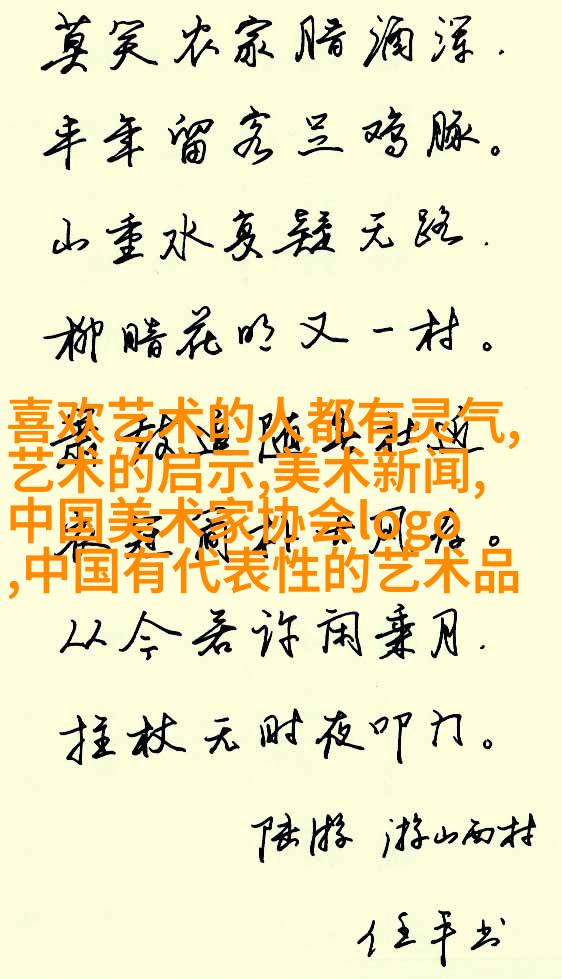 莫笑农家腊酒浑.
丰年留客足鸡豚。
山重水复疑无路.
柳暗花明又一村。
喜欢艺术的人都有灵气,
箫鼓追随春社近
艺术的启示,美术新闻,
中国美术家协会logo
衣冠简朴古风存。
,中国有代表性的艺术品
从今若许闲乘月.
拄杖无时夜叩门。
陆游 游山西村
任平书